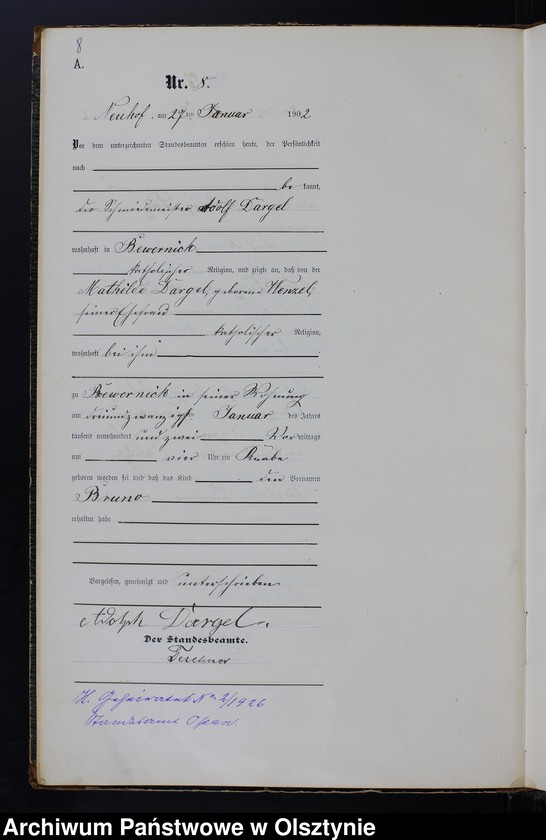 8
A.
Nr. 8.
Neuhof, am 27ten Januar 1902
Vor dem unterzeichneten Standesbeamten erschien heute, der Persönlichkeit
nach
be kannt,
der Schmiedemeister Adolf Dargel
wohnhaft in Bewernick
katholischer Religion, und zeigte an, daß von der
Mathilde Dargel, geborene Wenzel,
seiner Ehefrau
katholischer Religion,
wohnhaft bei ihm
zu Bewernick in seiner Wohnung
am dreiundzwanzigst. Januar des Jahres
tausend neunhundert und zwei Vormittags
um vier Uhr ein Knabe
geboren worden sei und daß das Kind den Vornamen
Bruno
erhalten habe
Vorgelesen, genehmigt und unterschrieben
Adolph Dargel.
Der Standesbeamte.
H. Geheiratet No. 2/1926
Standesamt
Archiwum Państwowe w Olsztynie